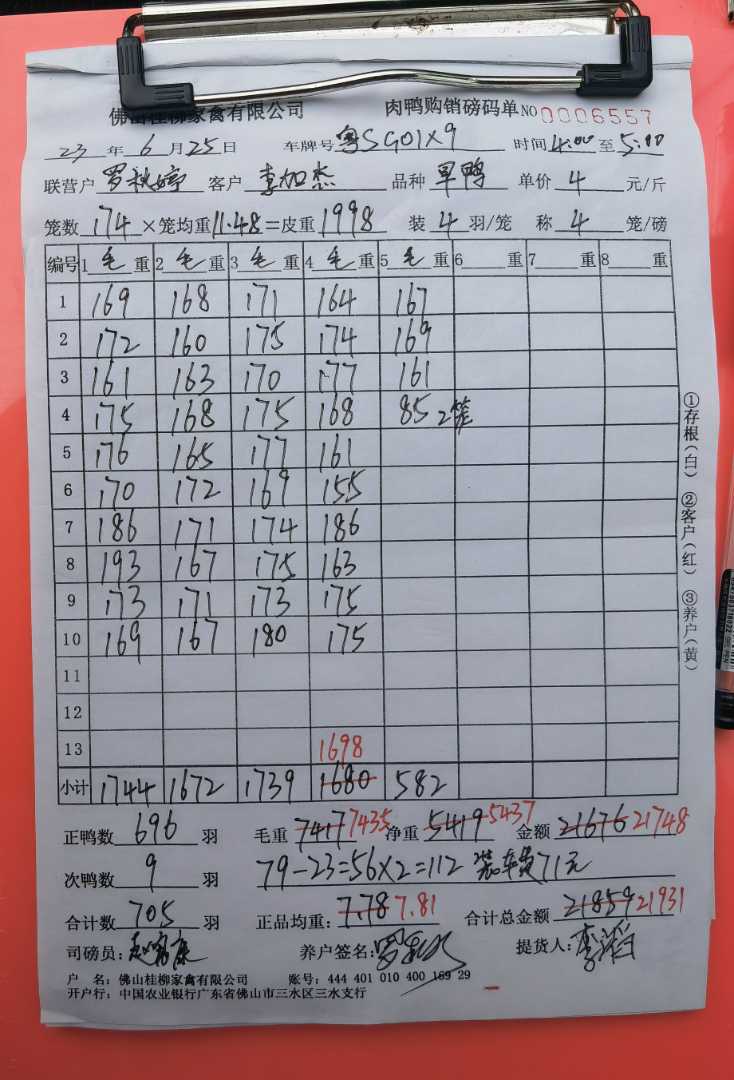 佛山桂柳家禽有限公司 肉鸭购销磅码单 NO 0006557
23 年 6 月 25 日 车牌号 粤SG01X9 时间 4:00 至 5:00
联营户 罗秋婷 客户 李加杰 品种 早鸭 单价 4 元/斤
笼数 174 ×笼均重 11.48 =皮重 1998 装 4 羽/笼 称 4 笼/磅
编号 1 毛 重 2 毛 重 3 毛 重 4 毛 重 5 毛 重 6 重 7 重 8 重
1 169 168 171 164 167
2 172 160 175 174 169
3 161 163 170 177 161
4 175 168 175 168 85 2笼
5 176 165 177 161
6 170 172 169 155
7 186 171 174 186
8 193 167 175 163
9 173 171 173 175
10 169 167 180 175
11
12
13 1698
小计 1744 1672 1739 1680 582
正鸭数 696 羽 毛重 7417 7435 净重 5419 5437 金额 21676 21748
次鸭数 9 羽 79-23=56×2=112 装车费71元
合计数 705 羽 正品均重: 7.78 7.81 合计总金额 21859 21931
司磅员: 养户签名: 提货人:
户 名: 佛山桂柳家禽有限公司 账号: 444 401 010 400 169 29
开户行: 中国农业银行广东省佛山市三水区三水支行
①存根(白) ②客户(红) ③养户(黄)